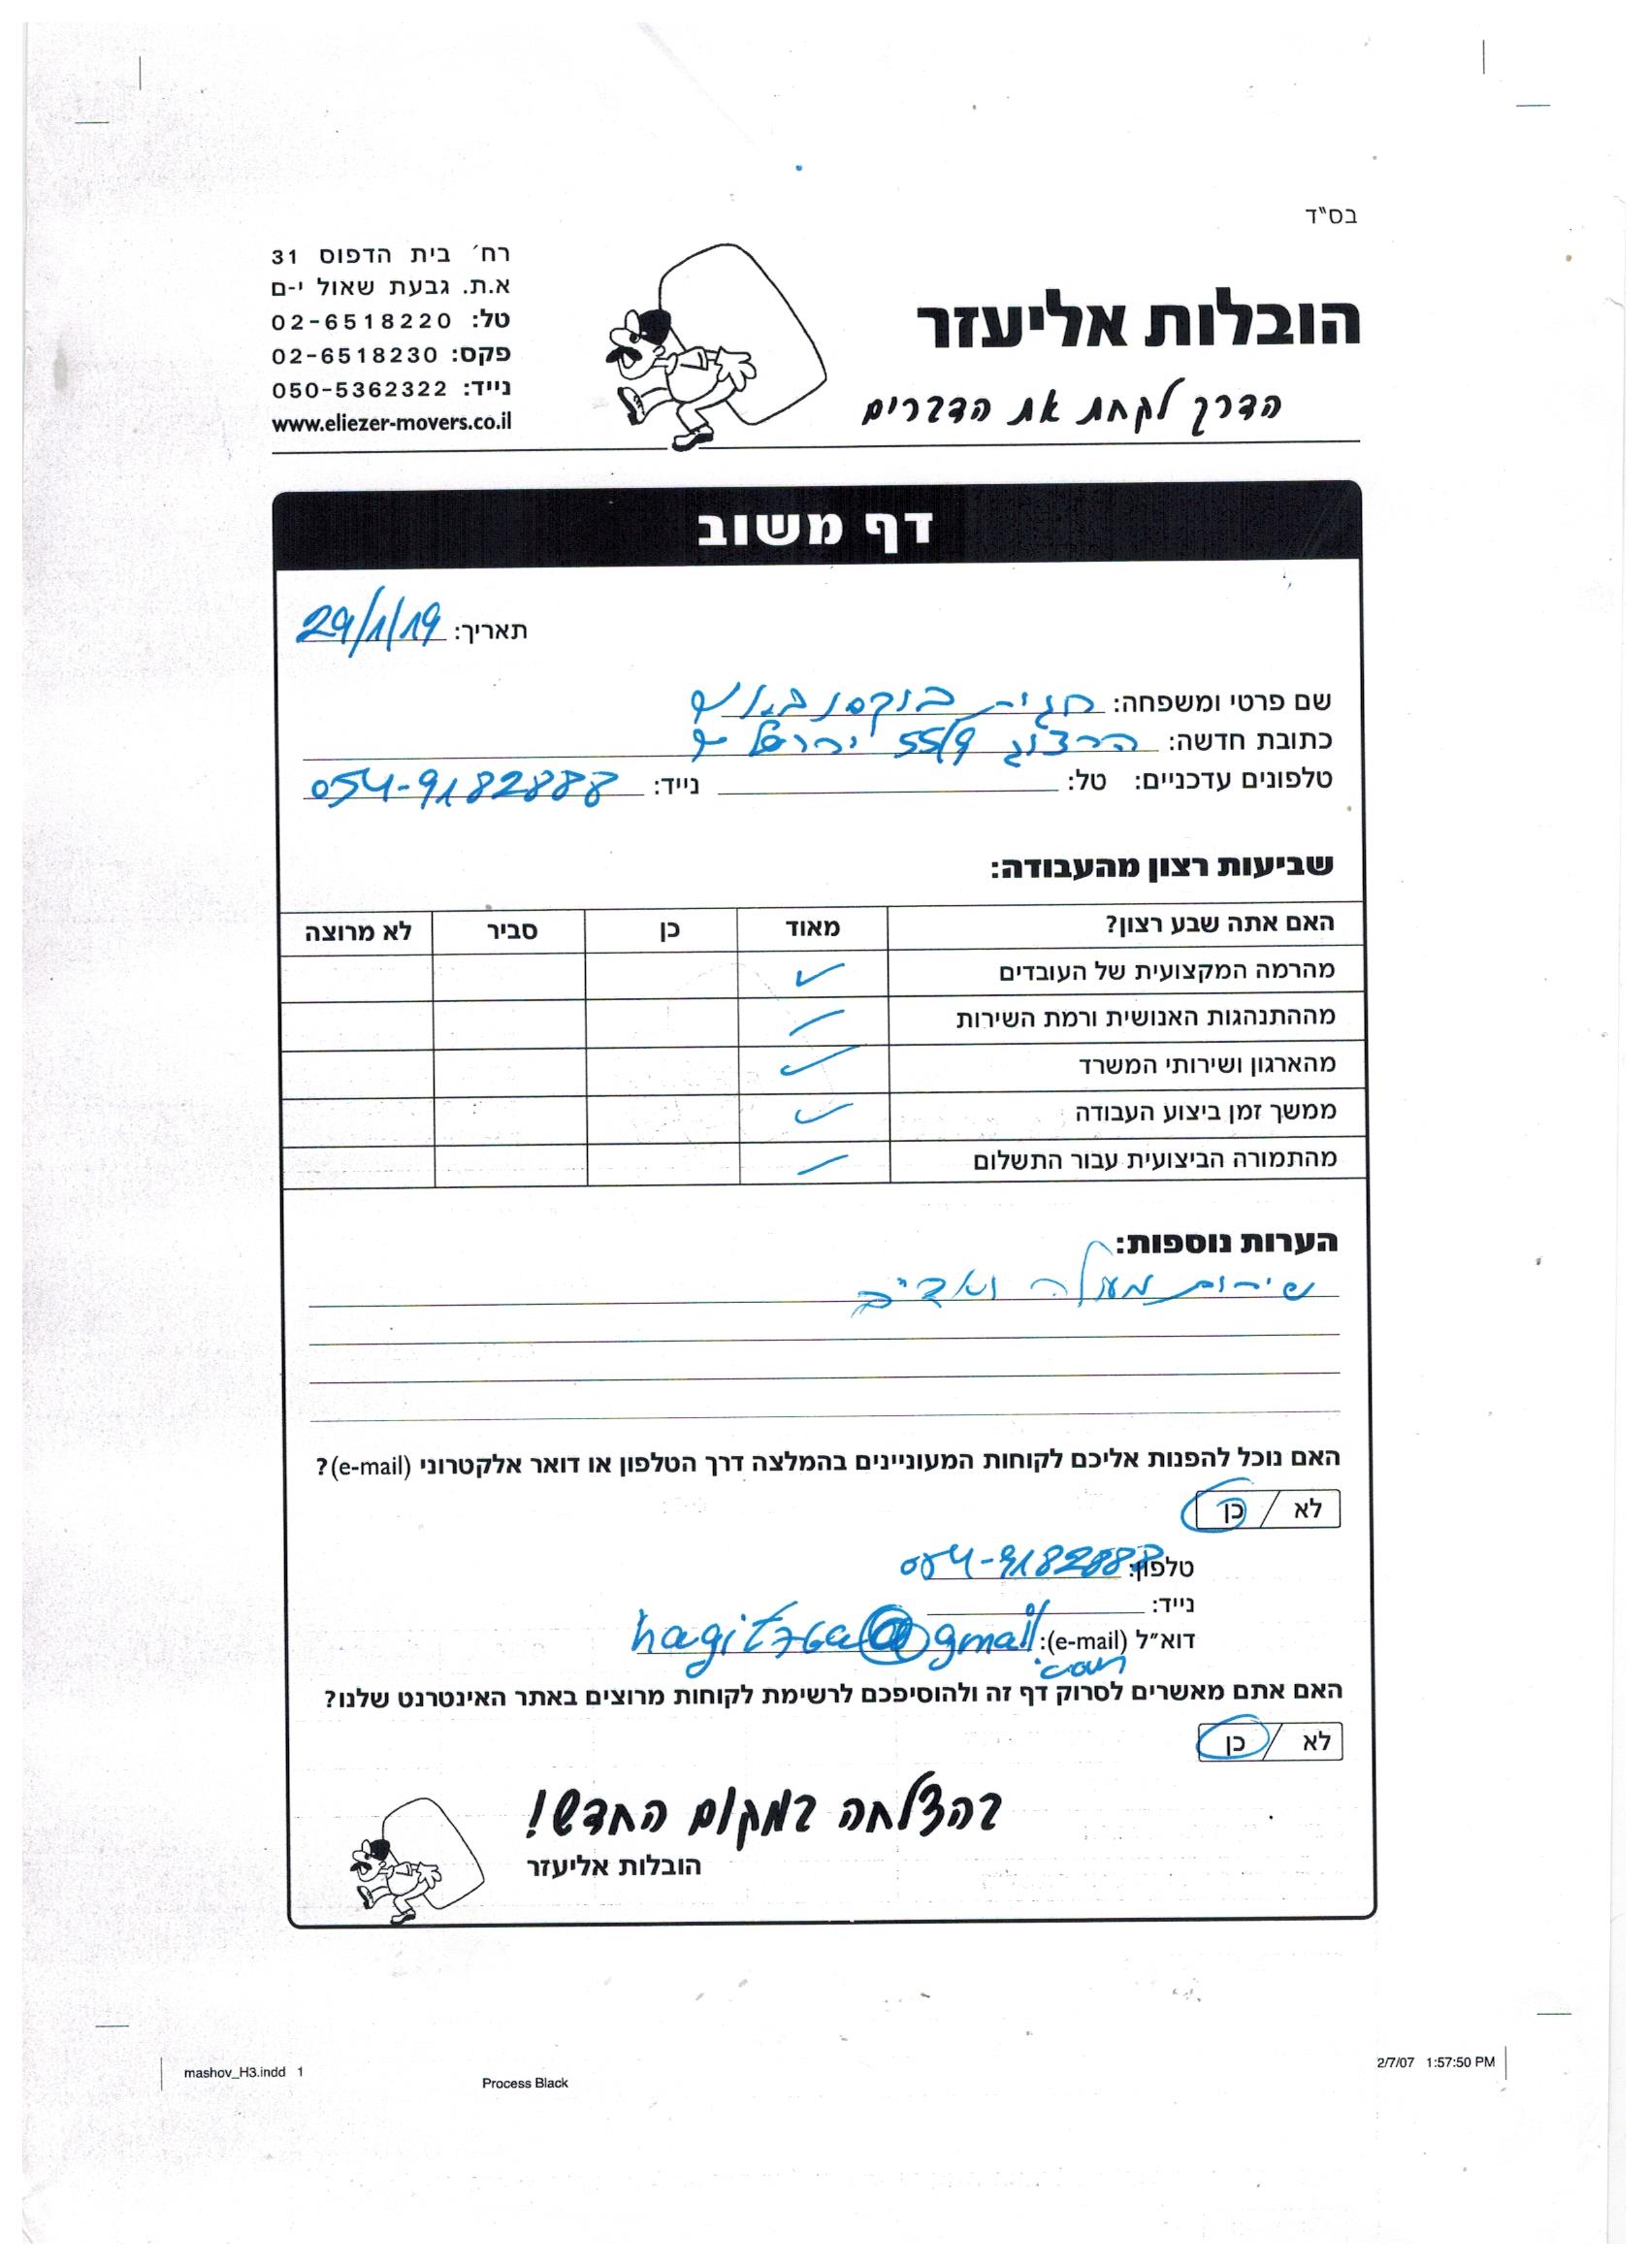 בס"ד
הובלות אליעזר
הדרך לקחת את הדברים
רח׳ בית הדפוס 31
א.ת. גבעת שאול י-ם
טל: 02-6518220
פקס: 02-6518230
נייד: 050-5362322
www.eliezer-movers.co.il
דף משוב
תאריך: 29/1/19
שם פרטי ומשפחה: חגית
כתובת חדשה: הרצוג 55/9 ירושלים
טלפונים עדכניים: טל: נייד: 054-9182888
שביעות רצון מהעבודה:
האם אתה שבע רצון? מאוד כן סביר לא מרוצה
מהרמה המקצועית של העובדים ✓
מההתנהגות האנושית ורמת השירות ✓
מהארגון ושירותי המשרד ✓
ממשך זמן ביצוע העבודה ✓
מהתמורה הביצועית עבור התשלום ✓
הערות נוספות:
שירות מעולה ואדיב
האם נוכל להפנות אליכם לקוחות המעוניינים בהמלצה דרך הטלפון או דואר אלקטרוני (e-mail)?
לא / כן
טלפון: 054-9182888
נייד:
דוא"ל (e-mail): hagit76a@gmail
.com
האם אתם מאשרים לסרוק דף זה ולהוסיפכם לרשימת לקוחות מרוצים באתר האינטרנט שלנו?
לא / כן
בהצלחה במקום החדש!
הובלות אליעזר
mashov_H3.indd 1
Process Black
2/7/07 1:57:50 PM